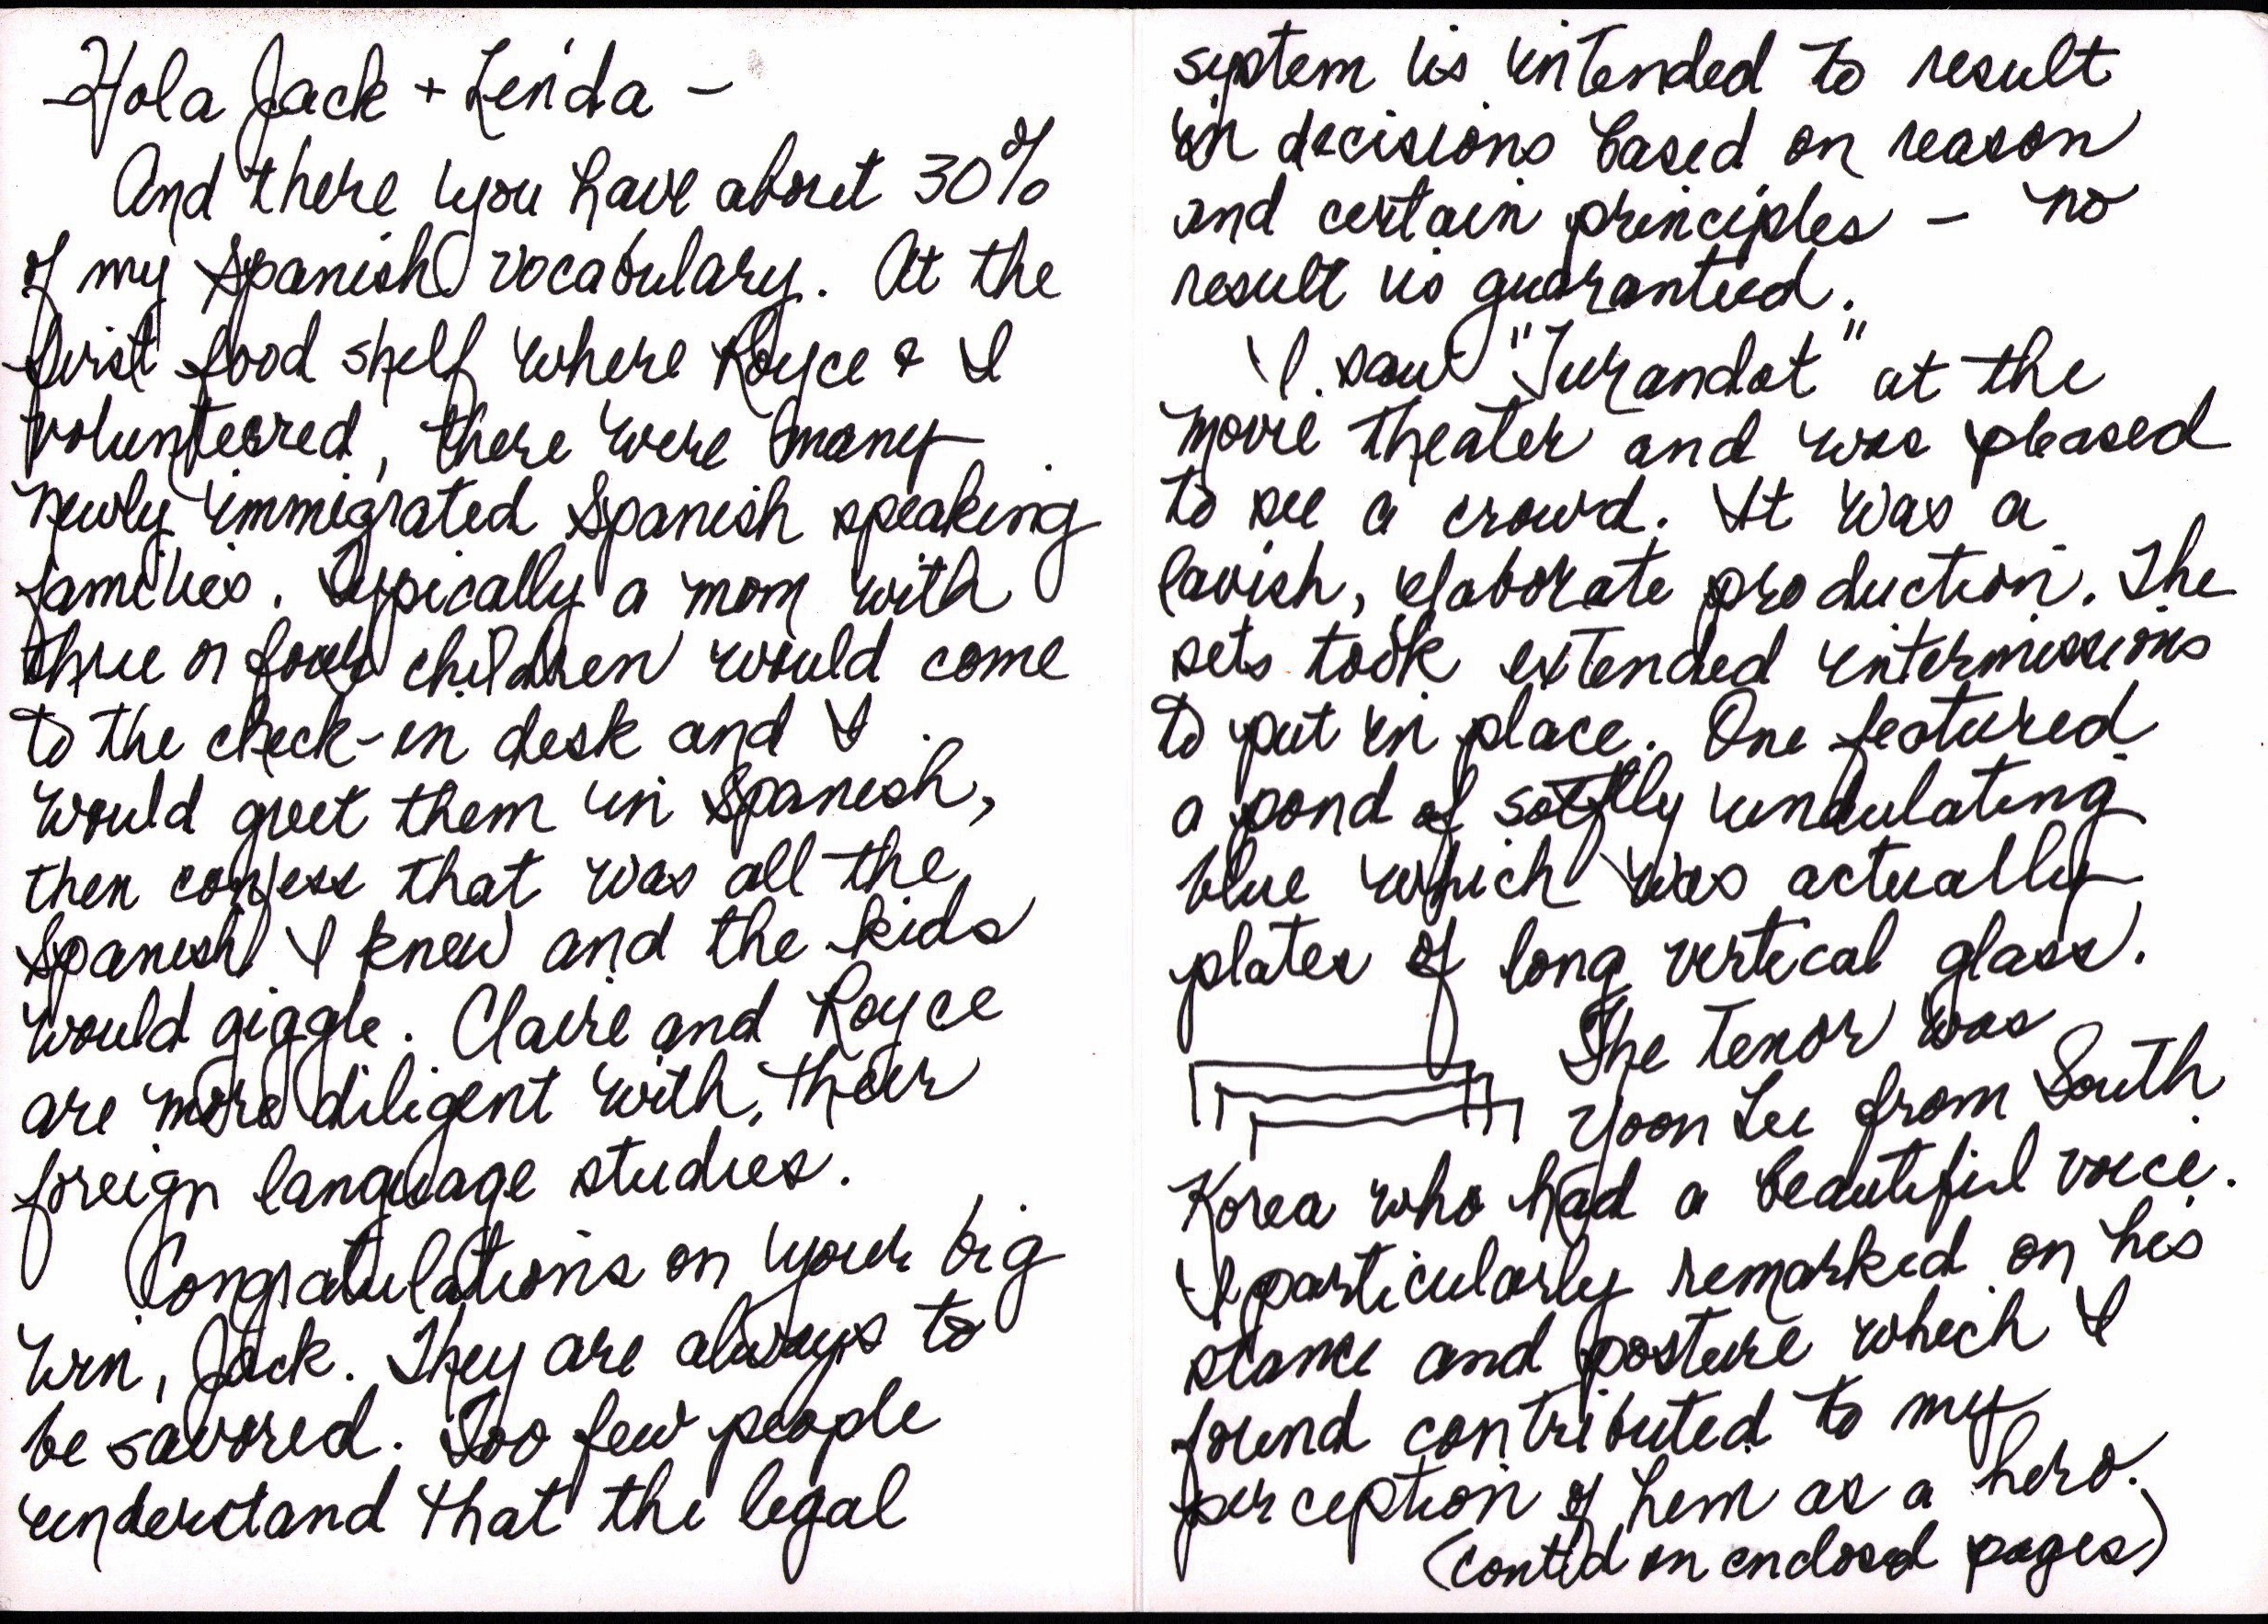 Hola Jack + Linda -
And there you have about 30%
of my Spanish vocabulary. At the
first food shelf where Royce & I
volunteered, there were many
newly immigrated Spanish speaking
families. Typically a mom with
three or four children would come
to the check-in desk and I
would greet them in Spanish,
then confess that was all the
Spanish I knew and the kids
would giggle. Claire and Royce
are more diligent with their
foreign language studies.
Congratulations on your big
win, Jack. They are always to
be savored. Too few people
understand that the legal
system is intended to result
in decisions based on reason
and certain principles - no
result is guaranteed.
I saw "Turandot" at the
movie theater and was pleased
to see a crowd. It was a
lavish, elaborate production. The
sets took extended intermissions
to put in place. One featured
a pond of softly undulating
blue which was actually
plates of long vertical glass.
The tenor was
Yoon Lee from South
Korea who had a beautiful voice.
I particularly remarked on his
stance and posture which I
found contributed to my
perception of him as a hero.
(contd on enclosed pages)